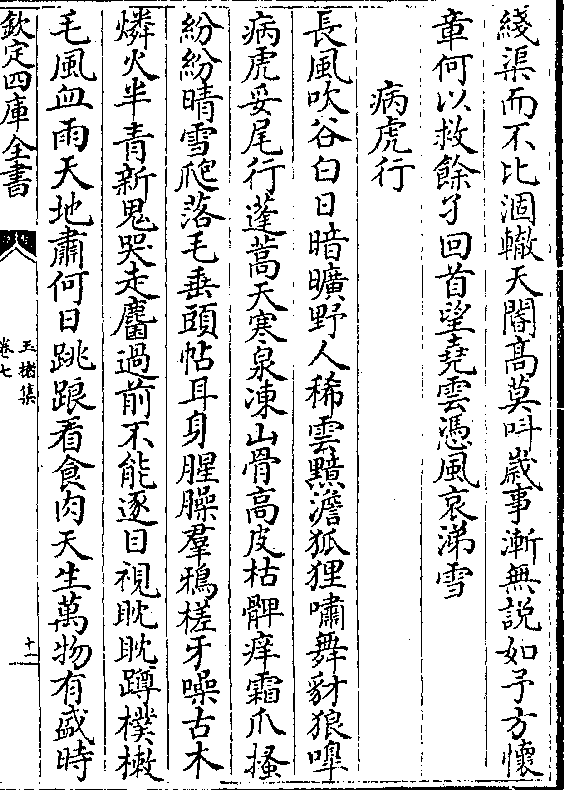 綫渠而不比涸轍天閽髙莫呌嵗事漸無説如予方懐
章何以救餘孑回首望堯雲憑風哀涕雪
病虎行
長風吹谷白日暗曠野人稀雲黯澹狐狸嘯舞豺狼嘷
病虎妥尾行蓬蒿天寒泉凍山骨高皮枯髀痒霜爪搔
紛紛晴雪爬落毛垂頭帖耳身腥臊羣鴉槎牙噪古木
燐火半青新鬼哭走麕過前不能逐目視眈眈蹲樸樕
毛風血雨天地肅何日跳踉看食肉天生萬物有盛時
欽定四庫全書
玉楮集
卷七
十一